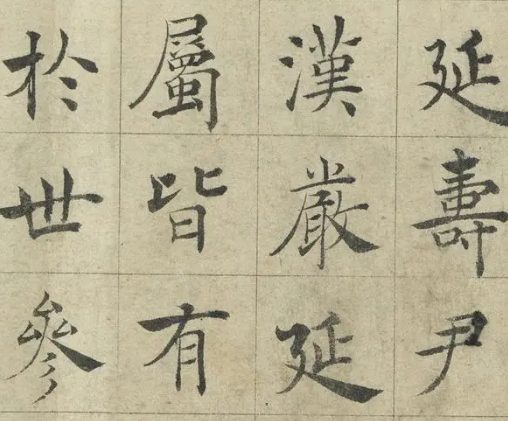 延壽尹
漢嚴延
屬皆有
於世參